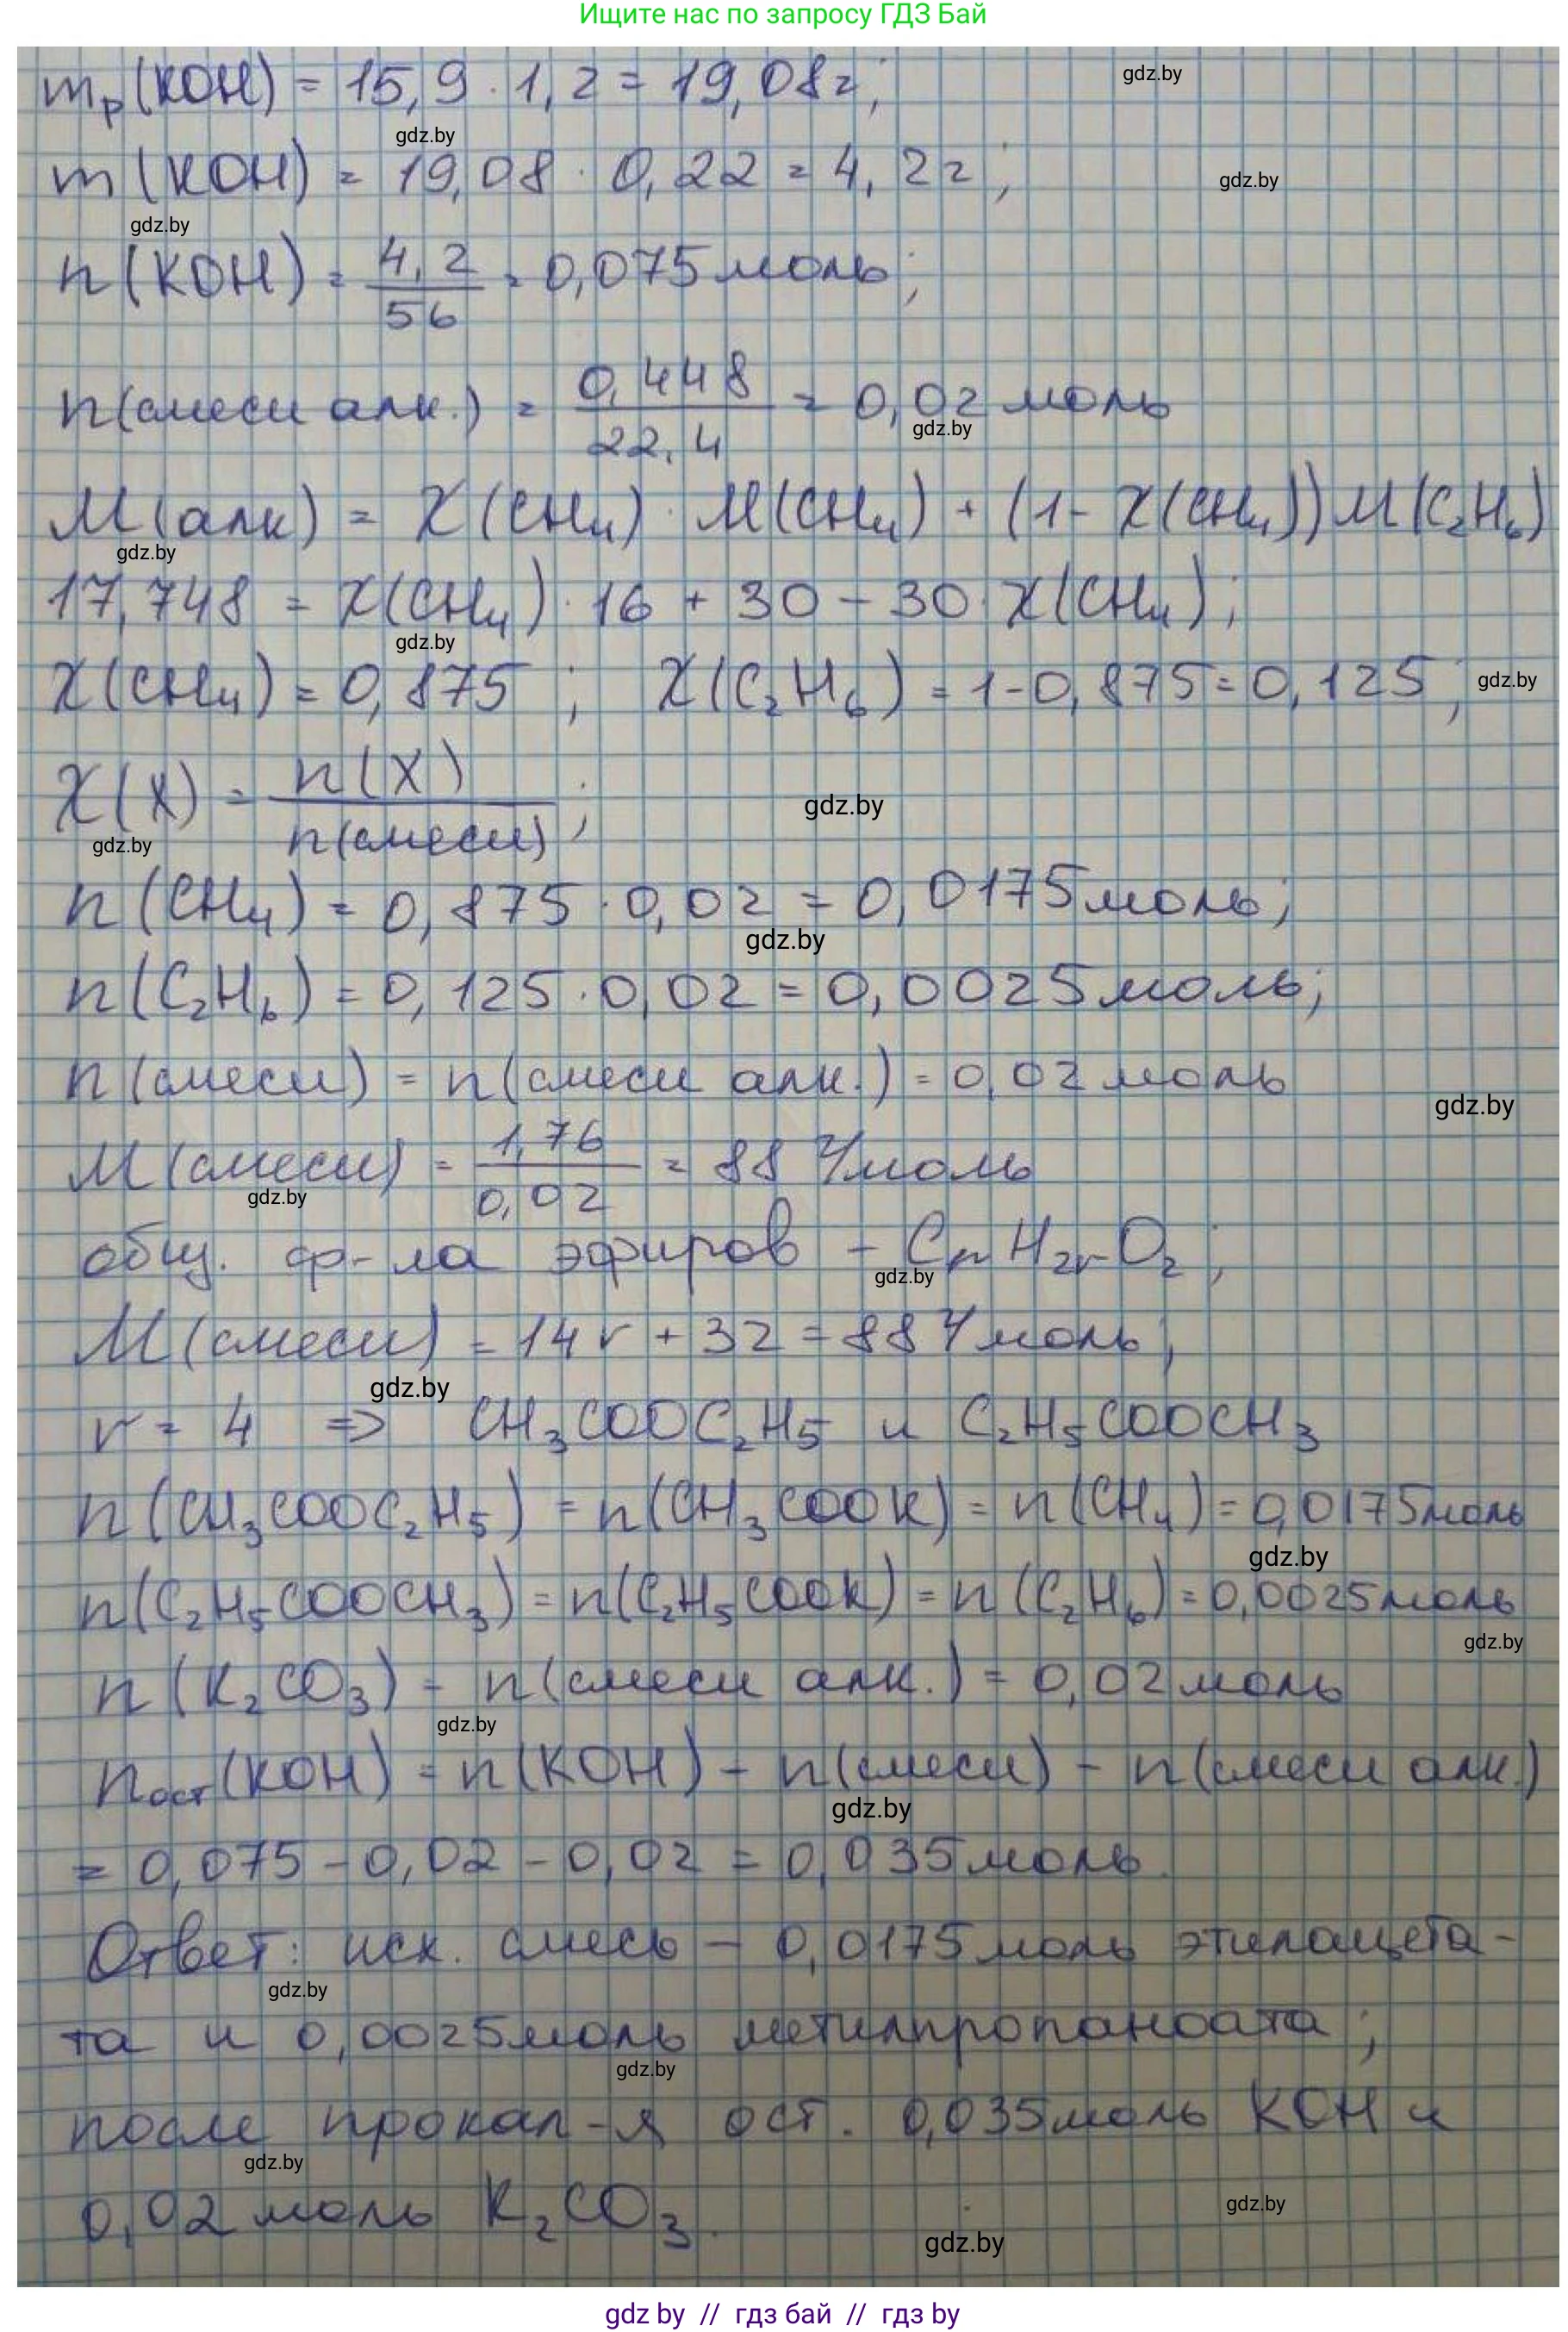 Ищите нас по запросу ГДЗ Бай
mр(KOH) = 15,9 · 1,2 = 19,08г; gdz.by
gdz.by
m(KOH) = 19,08 · 0,22 = 4,2г; gdz.by
gdz.by
n(KOH) = 4,2/56 = 0,075 моль;
n(смеси алк.) = 0,448/22,4 = 0,02 моль
gdz.by
M(алк) = X(CH₄) · M(CH₄) + (1 - X(CH₄)) M(C₂H₆)
gdz.by
17,748 = X(CH₄) · 16 + 30 - 30 · X(CH₄);
gdz.by
X(CH₄) = 0,875; X(C₂H₆) = 1 - 0,875 = 0,125; gdz.by
X(X) = n(X)/n(смеси); gdz.by
gdz.by
n(CH₄) = 0,875 · 0,02 = 0,0175 моль;
gdz.by
n(C₂H₆) = 0,125 · 0,02 = 0,0025 моль;
n(смеси) = n(смеси алк.) = 0,02 моль
gdz.by
M(смеси) = 1,76/0,02 = 88 г/моль
gdz.by
общ. ф-ла эфиров - CrH2rO₂;
gdz.by
M(смеси) = 14r + 32 = 88 г/моль;
gdz.by
r = 4 => CH₃COOC₂H₅ и C₂H₅COOCH₃
n(CH₃COOC₂H₅) = n(CH₃COOK) = n(CH₄) = 0,0175 моль
gdz.by
n(C₂H₅COOCH₃) = n(C₂H₅COOK) = n(C₂H₆) = 0,0025 моль
gdz.by
n(K₂CO₃) = n(смеси алк.) = 0,02 моль
gdz.by
nост(KOH) = n(KOH) - n(смеси) - n(смеси алк.)
gdz.by
= 0,075 - 0,02 - 0,02 = 0,035 моль.
Ответ: исх. смесь - 0,0175 моль этилацета-
gdz.by
та и 0,0025 моль метилпропаноата;
gdz.by
после прокал-я ост. 0,035 моль KOH и
gdz.by
0,02 моль K₂CO₃. gdz.by
gdz.by
gdz by // гдз бай // гдз by